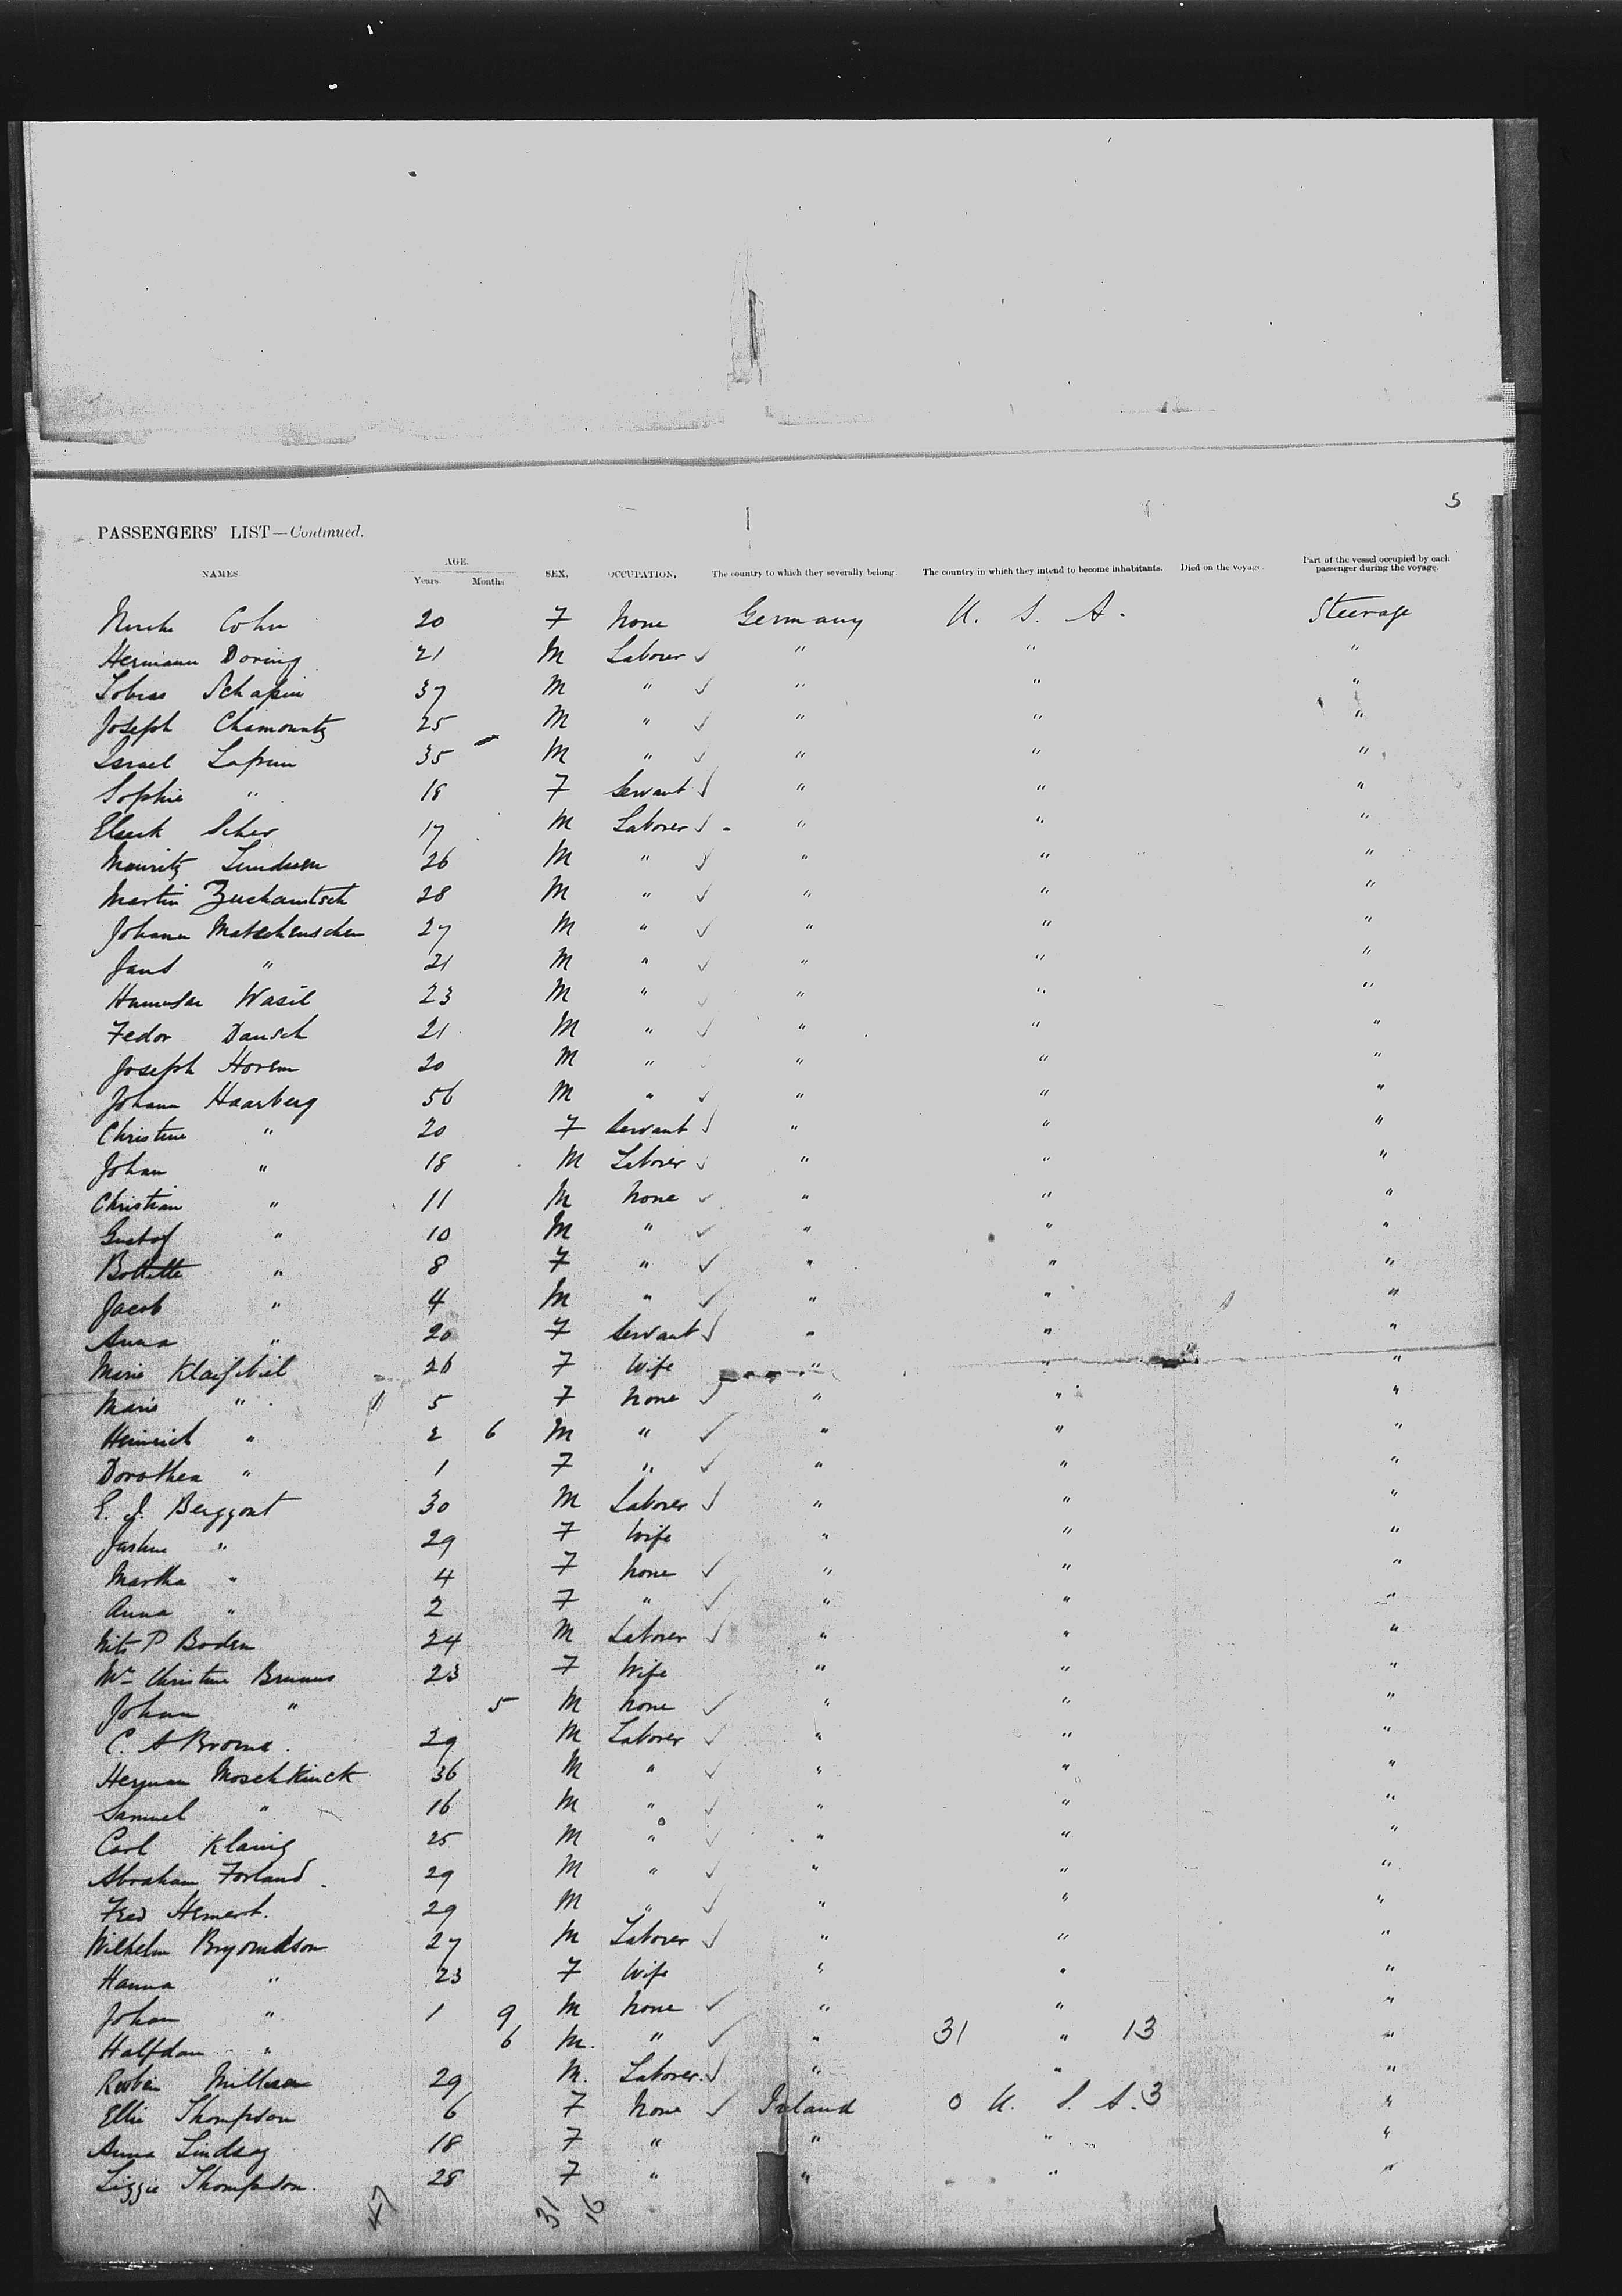 5
PASSENGERS' LIST—Continued.
NAMES. AGE. Years. Months SEX. OCCUPATION, The country to which they severally belong. The country in which they intend to become inhabitants. Died on the voyage. Part of the vessel occupied by each passenger during the voyage.
Cohn 20 F None Germany U. S. A. Steerage
Hermann Doring 21 M Laborer ✓ " " "
Tobias Schapiu 37 M " ✓ " " "
Joseph Chamountz 25 M " ✓ " " "
Israel Lapun 35 M " ✓ " " "
Sophie " 18 F Servant ✓ " " "
Scher 17 M Laborer ✓ " " "
Mauritz 26 M " ✓ " " "
Martin Zuchamtsch 28 M " ✓ " " "
Johann 27 M " ✓ " " "
" 21 M " ✓ " " "
Wasil 23 M " ✓ " " "
Fedor Dausch 21 M " ✓ " " "
Joseph Horem 20 M " " " "
Johann Haarberg 56 M " ✓ " " "
Christine " 20 F Servant ✓ " " "
Johan " 18 M Laborer ✓ " " "
Christian " 11 M None ✓ " " "
Gustof " 10 M " ✓ " " "
" 8 F " ✓ " " "
Jacob " 4 M " ✓ " " "
Anna " 20 F Servant ✓ " " "
Marie 26 F Wife " " "
Marie " 5 F None ✓ " " "
Heinrich " 2 6 M " ✓ " " "
Dorothea " 1 F " ✓ " " "
E. J. Berggout 30 M Laborer ✓ " " "
" 29 F Wife " " "
Martha " 4 F None ✓ " " "
Anna " 2 F " ✓ " " "
Nils P Boden 24 M Laborer ✓ " " "
Christine Brunus 23 F Wife " " "
Johan " 5 M None ✓ " " "
C. A Brome. 29 M Laborer ✓ " " "
Herman Moschkinck 36 M " ✓ " " "
Samuel " 16 M " ✓ " " "
Carl Klaing 25 M " ✓ " " "
Abraham Forland 29 M " ✓ " " "
Fred Hemert. 29 M " ✓ " " "
Wilhelm Bryomdson 27 M Laborer ✓ " " "
Hanna " 23 F Wife " " "
Johan " 1 9 M None ✓ " " "
Halfdan " 6 M. " ✓ " 31 " 13 "
29 M. Laborer. ✓ " " "
Ellie Thompson 6 F None ✓ Ireland 0 U. S. A. 3 "
Anna Lindsay 18 F " " " "
Lizzie Thompson. 28 F " " " "
47 31 16